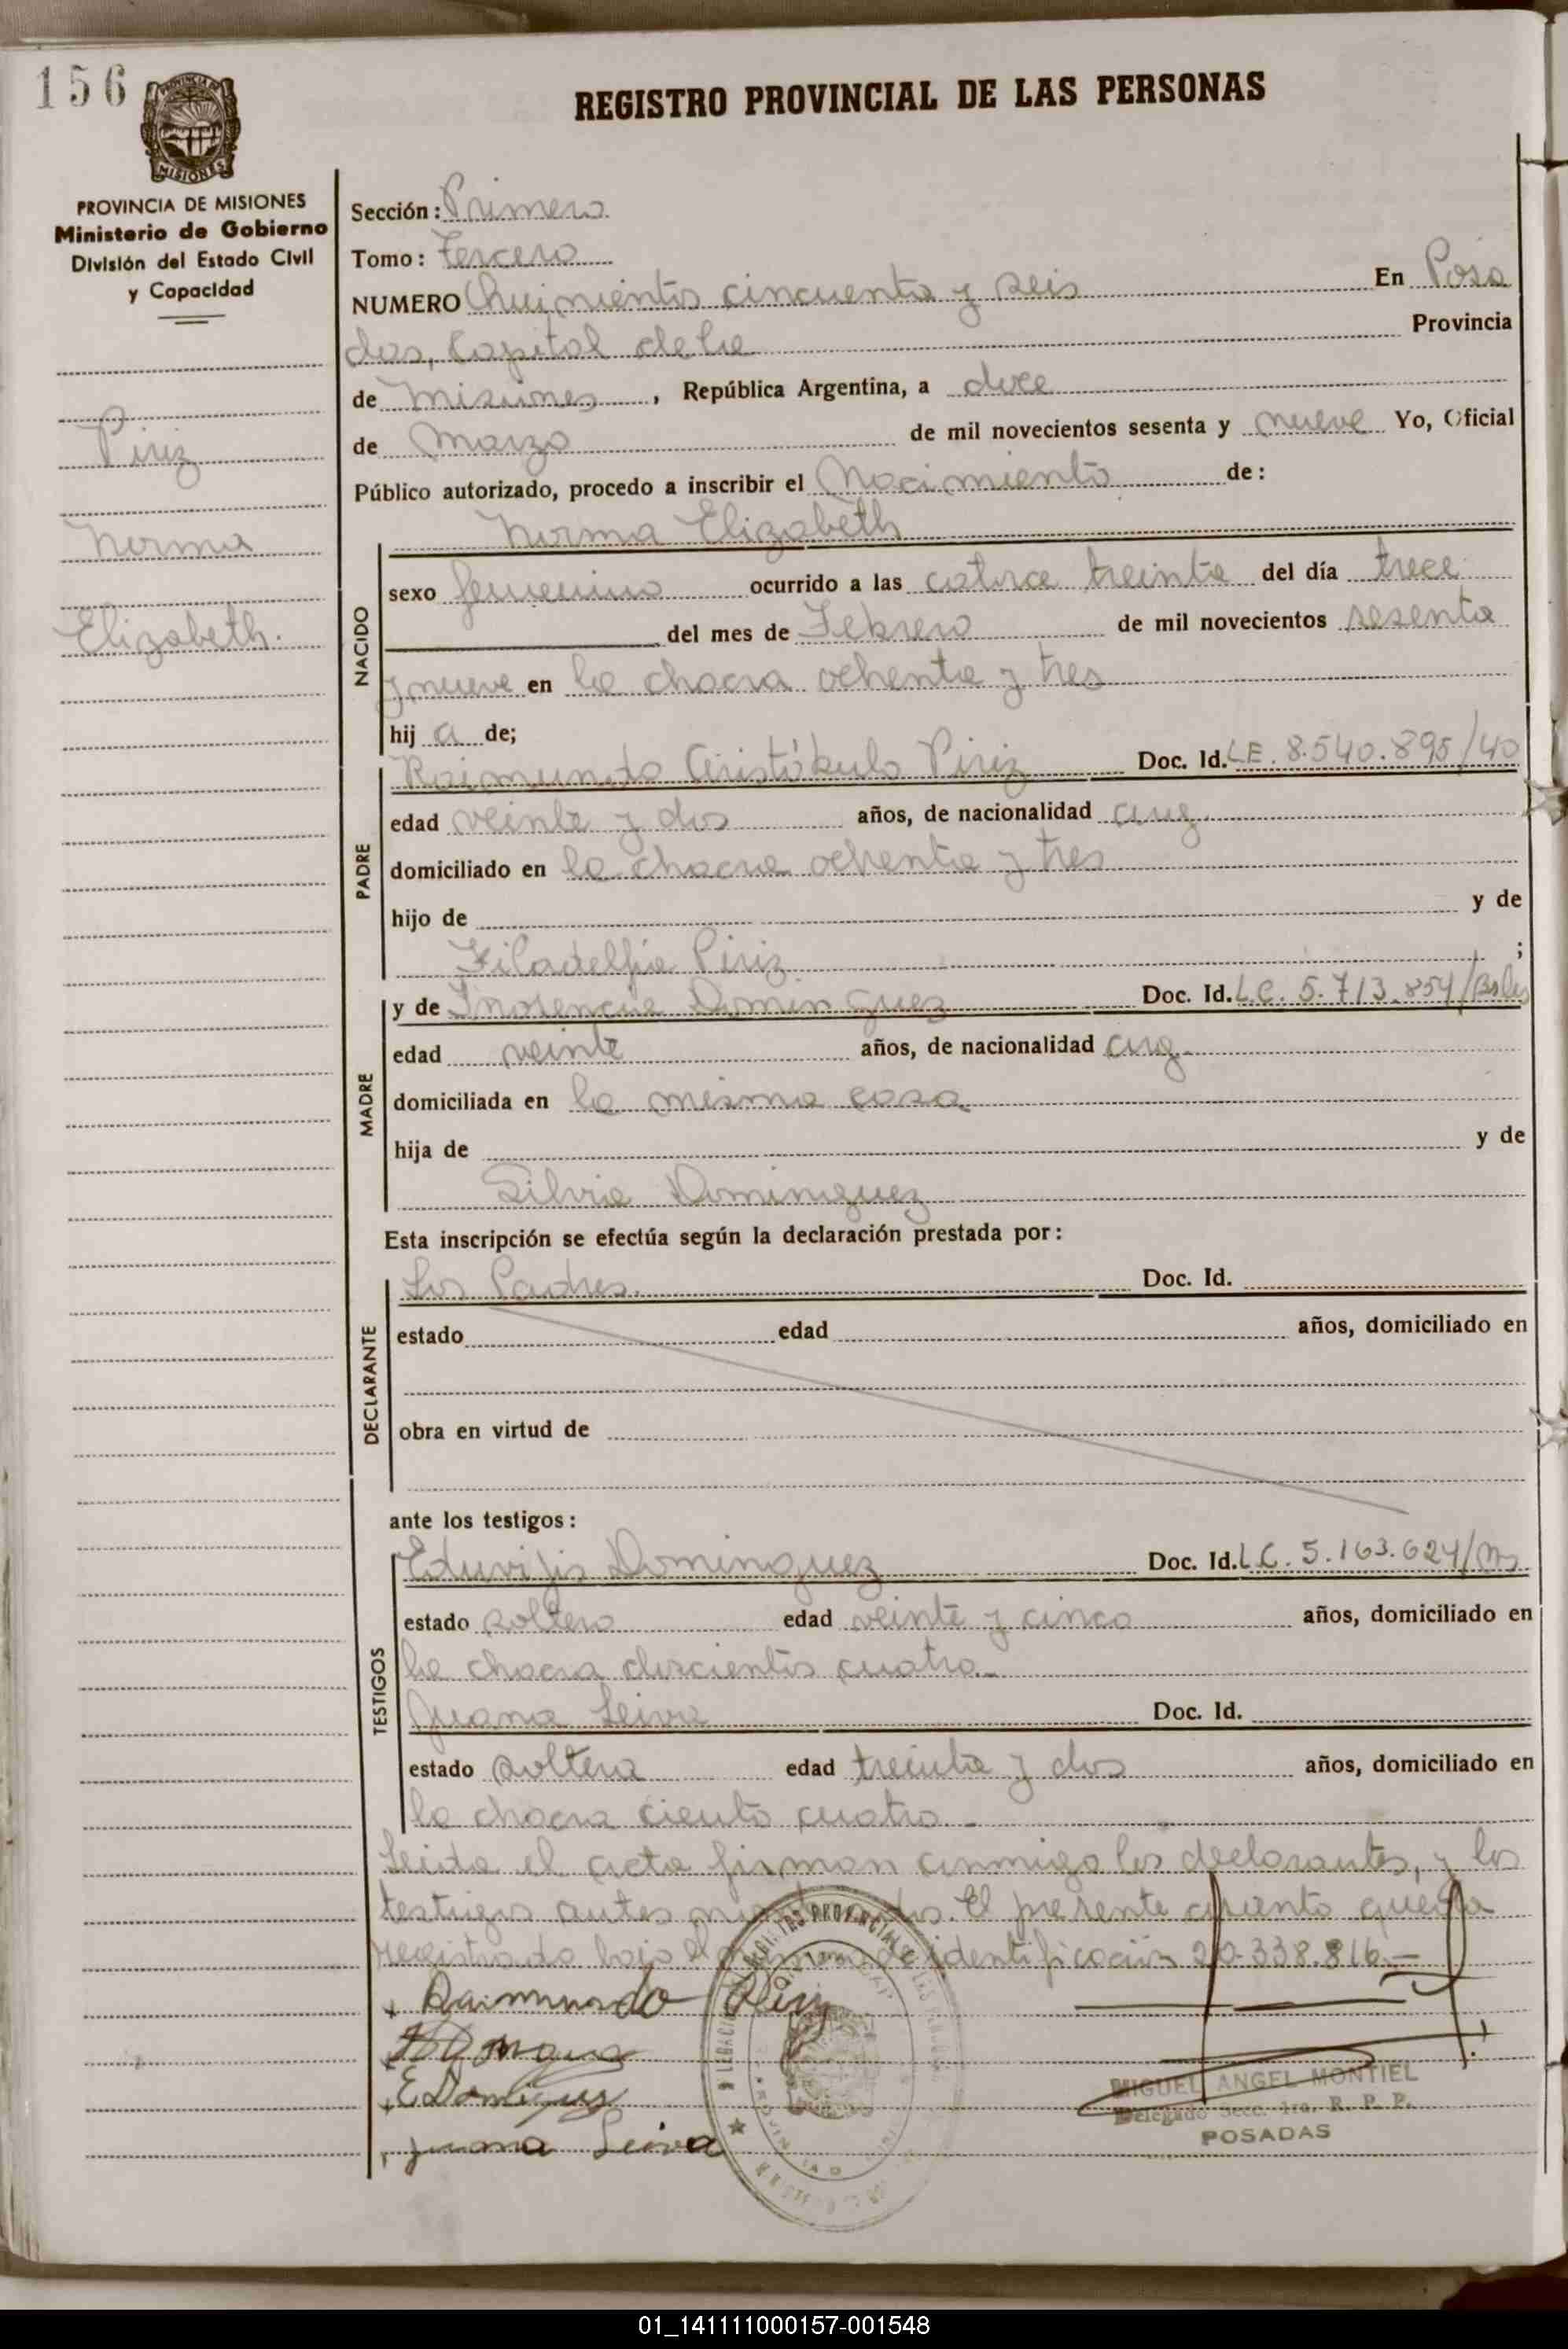 156
REGISTRO PROVINCIAL DE LAS PERSONAS
MISIONES
PROVINCIA DE MISIONES
Ministerio de Gobierno
División del Estado Civil
y Capacidad
Piriz
Norma
Elizabeth.
Sección: Primera
Tomo: Tercero
NUMERO Quinientos cincuenta y seis En Posa
das, Capital de la Provincia
de Misiones, República Argentina, a doce
de Marzo de mil novecientos sesenta y nueve Yo, Oficial
Público autorizado, procedo a inscribir el Nacimiento de:
Norma Elizabeth
NACIDO
sexo femenino ocurrido a las catorce treinta del día trece
del mes de Febrero de mil novecientos sesenta
y nueve en la chacra ochenta y tres
hij a de;
PADRE
Raimundo Aristóbulo Piriz Doc. Id. L.E. 8.540.895/40
edad veinte y dos años, de nacionalidad arg.
domiciliado en la chacra ochenta y tres
hijo de y de
Filadelfia Piriz ;
MADRE
y de Inosencia Dominguez Doc. Id. L.C. 5.713.854/
edad veinte años, de nacionalidad arg.
domiciliada en la misma casa
hija de y de
Silvia Dominguez
Esta inscripción se efectúa según la declaración prestada por:
DECLARANTE
Los Padres. Doc. Id.
estado edad años, domiciliado en
obra en virtud de
ante los testigos:
TESTIGOS
Eduvijis Dominguez Doc. Id. L.C. 5.163.624/
estado soltera edad veinte y cinco años, domiciliado en
la chacra doscientos cuatro.
Juana Leiva Doc. Id.
estado soltera edad treinta y dos años, domiciliado en
la chacra ciento cuatro.
Leida el acta firman conmigo los declarantes, y los
testigos antes. El presente asiento queda
registrado bajo el de identificación 20.338.816.—
Raimundo Piriz
E Dominguez
Juana Leiva
MIGUEL ANGEL MONTIEL
Delegado Secc. 1ra. R. P. P.
POSADAS
01_141111000157-001548